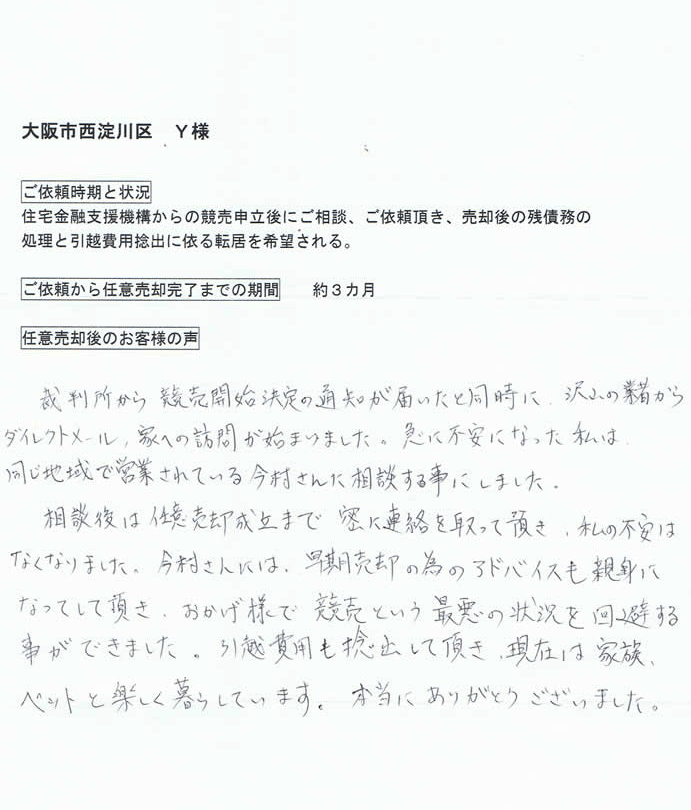 大阪市西淀川区　Y様
ご依頼時期と状況
住宅金融支援機構からの競売申立後にご相談、ご依頼頂き、売却後の残債務の
処理と引越費用捻出に依る転居を希望される。
ご依頼から任意売却完了までの期間　約３カ月
任意売却後のお客様の声
裁判所から競売開始決定の通知が届いたと同時に、沢山の業者から
ダイレクトメール、家への訪問が始まりました。急に不安になった私は、
同じ地域で営業されている今村さんに相談する事にしました。
相談後は任意売却成立まで密に連絡を取って頂き、私の不安は
なくなりました。今村さんには、早期売却の為のアドバイスも親身に
なってして頂き、おかげ様で競売という最悪の状況を回避する
事ができました。引越費用も捻出して頂き、現在は家族、
ペットと楽しく暮らしています。本当にありがとうございました。